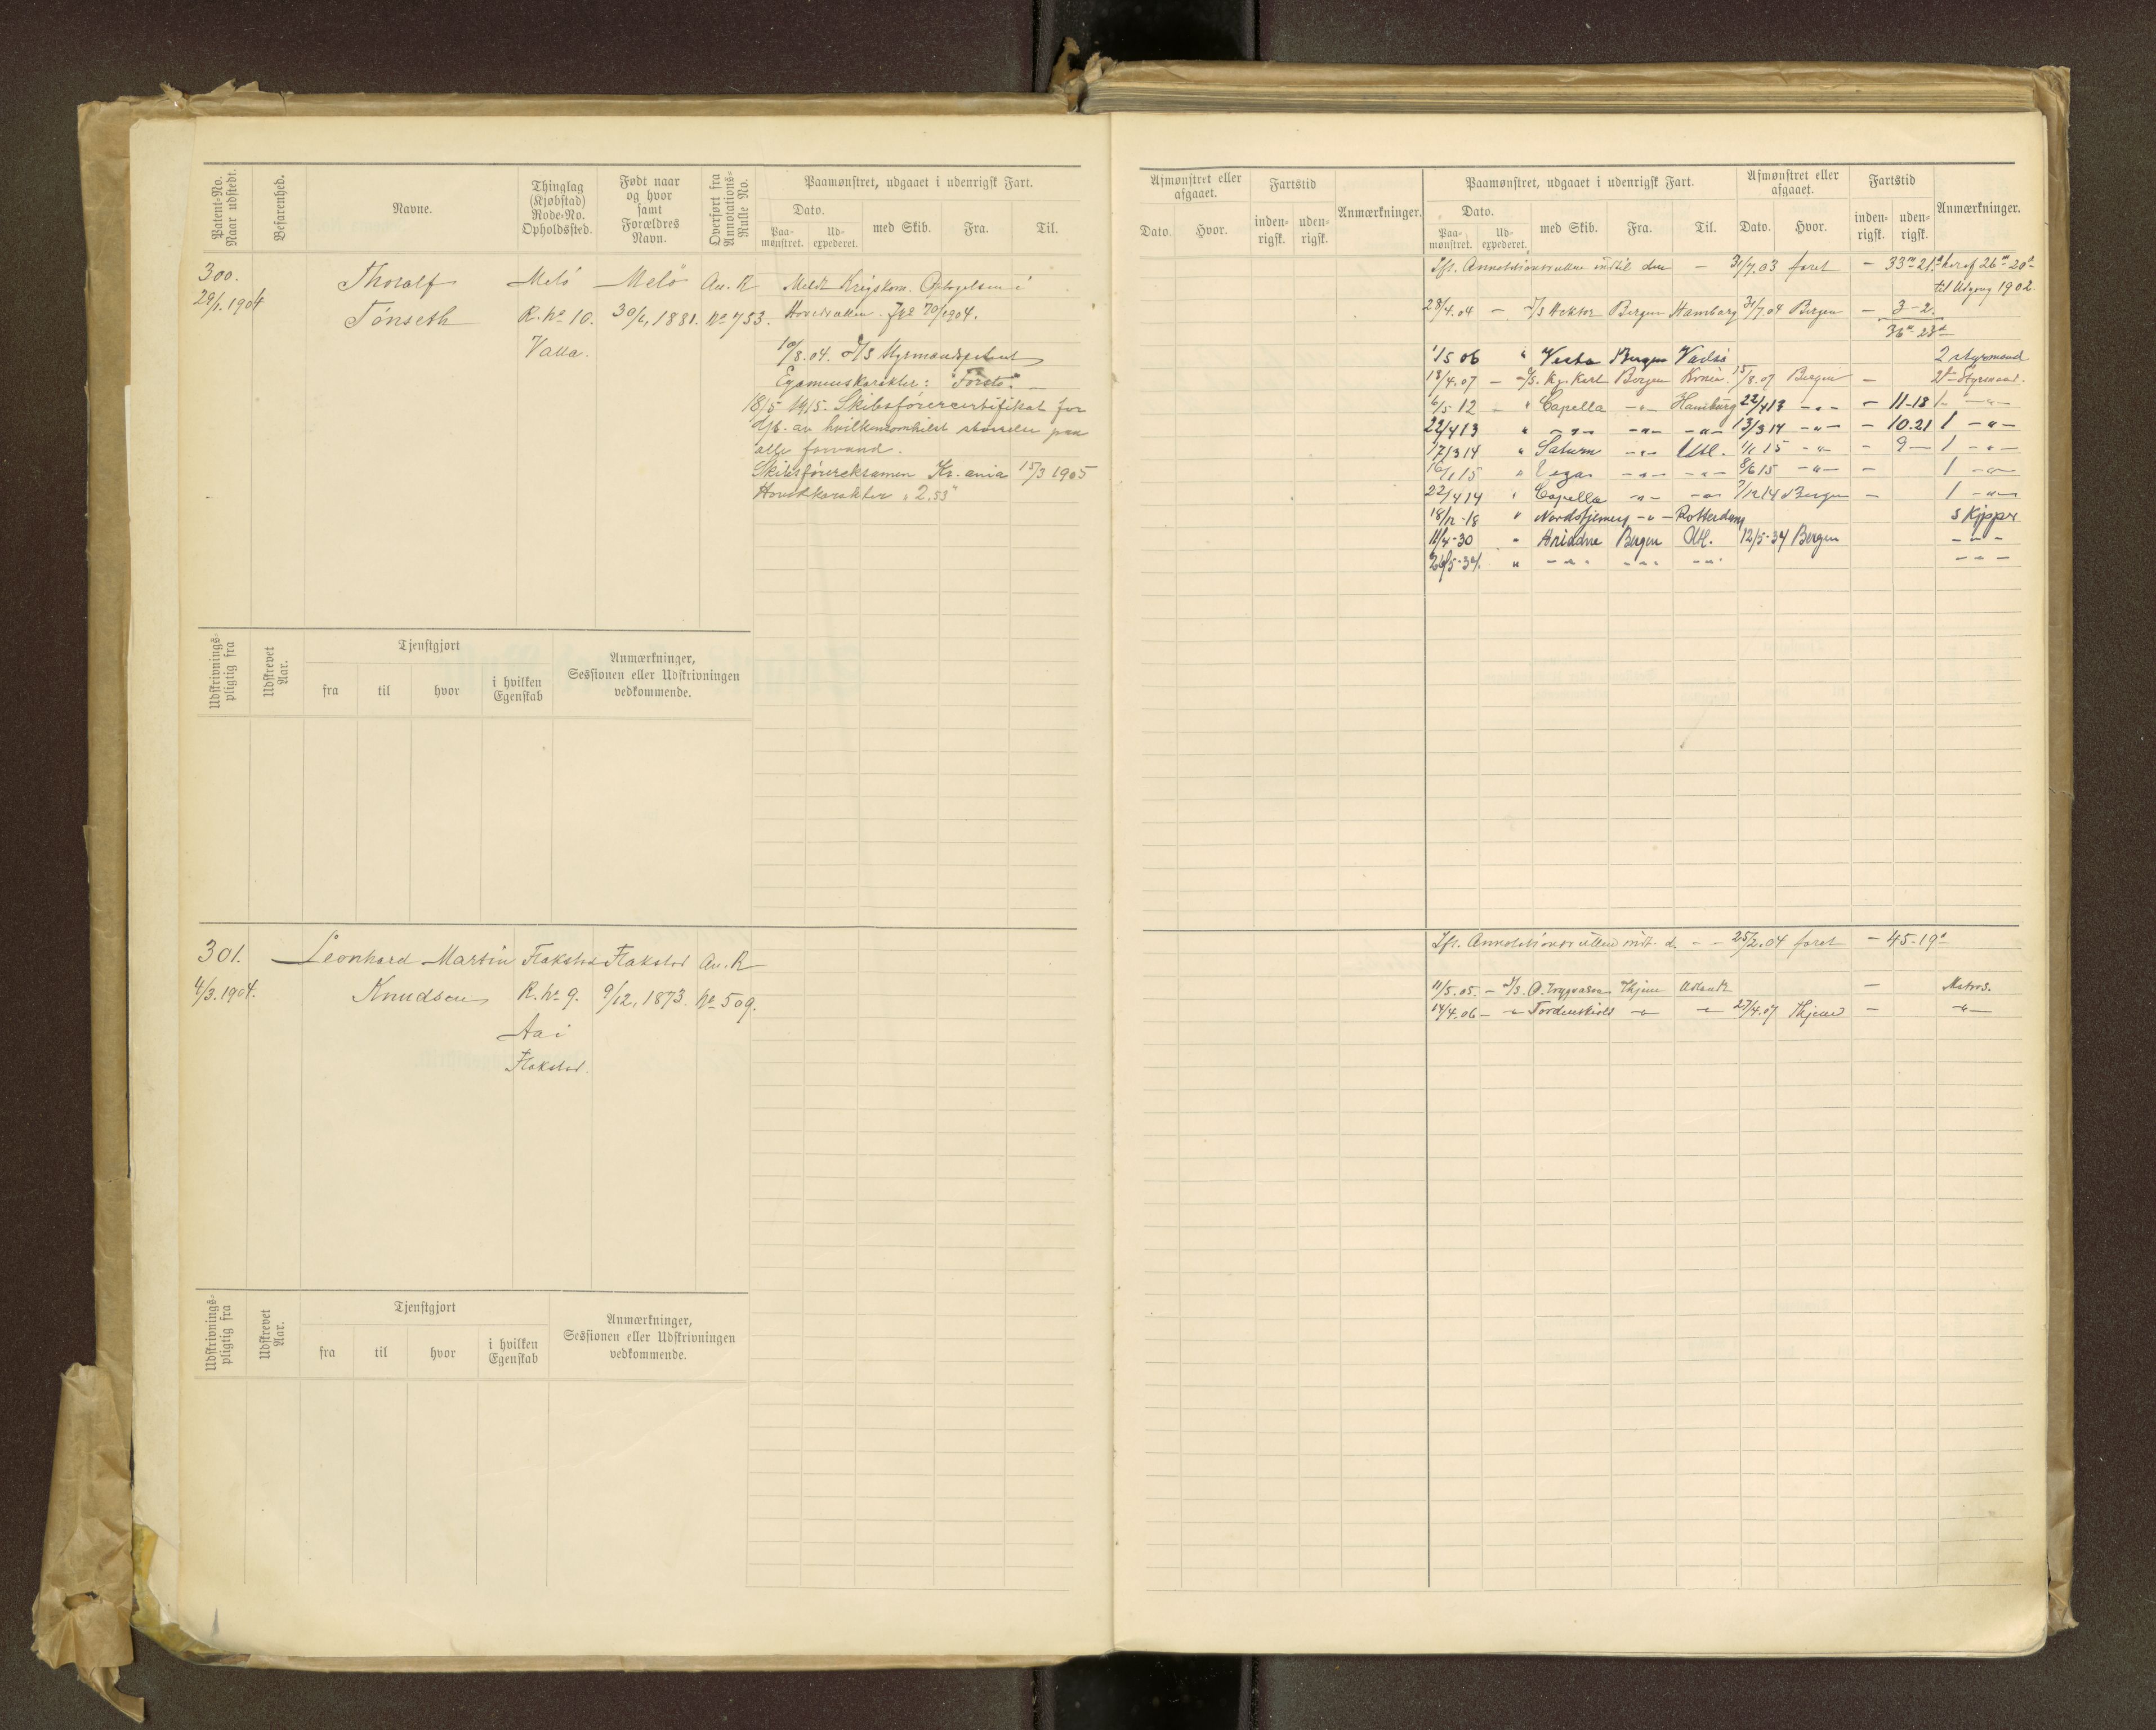 Patent-No.
Naar udstedt.
Befarenhed.
Navne.
Thinglag
(Kjøbstad)
Rode-No.
Opholdssted.
Født naar
og hvor
samt
Forældres
Navn.
Overført fra
Annotations-
Rulle No.
Paamønstret, udgaaet i udenrigsk Fart.
Dato.
Paa-
mønstret.
Ud-
expederet.
med Skib.
Fra.
Til.
300.
29/1.1904
Thoralf
Tönseth
Melö
R. No 10.
Valla.
Melö
30/6, 1881.
An. R
No 753.
Meldt Krigskom. Optagelsen i
Hovedrullen. J No 70/1904.
10/8.04. Styrmandspatent
Examenskarakter: "Første".
18/5 1915. Skibsförercertifikat for
av hvilkensomhelst størrelse paa
alle farvand.
Skibsførereksamen Kr.ania 15/3 1905
Hovedkarakter "2.53"
Udskrivnings-
pligtig fra
Udskrevet
Aar.
Tjenstgjort
fra
til
hvor
i hvilken
Egenskab
Anmærkninger,
Sessionen eller Udskrivningen
vedkommende.
301.
4/3.1904.
Leonhard Martin
Knudsen
Flakstad
R. No 9.
Aa i
Flakstad
Flakstad
9/12, 1873.
An. R
No 509.
Udskrivnings-
pligtig fra
Udskrevet
Aar.
Tjenstgjort
fra
til
hvor
i hvilken
Egenskab
Anmærkninger,
Sessionen eller Udskrivningen
vedkommende.
Afmønstret eller
afgaaet.
Dato.
Hvor.
Fartstid
inden-
rigsk.
uden-
rigsk.
Anmærkninger.
Paamønstret, udgaaet i udenrigsk Fart.
Dato.
Paa-
mønstret.
Ud-
expederet.
med Skib.
Fra.
Til.
Afmønstret eller
afgaaet.
Dato.
Hvor.
Fartstid
inden-
rigsk.
uden-
rigsk.
Anmærkninger.
Ifl. Annotationsrullen indtil den — 31/7.03 faret — 33m 21d heraf 26m 20d
til Udgang 1902.
28/4.04 — D/S Hektor Bergen Hamborg 31/7.04 Bergen — 3-2.
36m 23d
1/5 06 " Vesta Bergen Vadsö 2 styrmand
18/4.07 — Kg. Karl Bergen 15/8.07 Bergen — 2den Styrmand.
6/5 12 — " Capella -"- Hamburg 22/4 13 -"- — 11-18 1 -"-
22/4 13 " -"- -"- -"- 13/3 14 -"- — 10.21 1 -"-
17/3 14 " Saturn -"- Utl. 1/1 15 -"- — 9 — 1 -"-
16/1 15 " -"- -"- 8/6 15 -"- — 1 -"-
22/4 14 " Capella -"- -"- 7/12 14 Bergen — 1 -"-
18/12-18 " Nordstjernen -"- Rotterdam Skipper
11/4-30 " Ariadne Bergen Utl. 12/5-34 Bergen -"-
26/5-34. " -"- -"- -"- -"-
Ifl. Annotationsrullen indt. d. — 25/2.04 faret — 45-19d
11/5.05. — D/S. O. Trygvason Thjem Udlandet — Matros.
14/4.06 — -"- Tordenskiold -"- -"- 27/4.07 Thjem — -"-